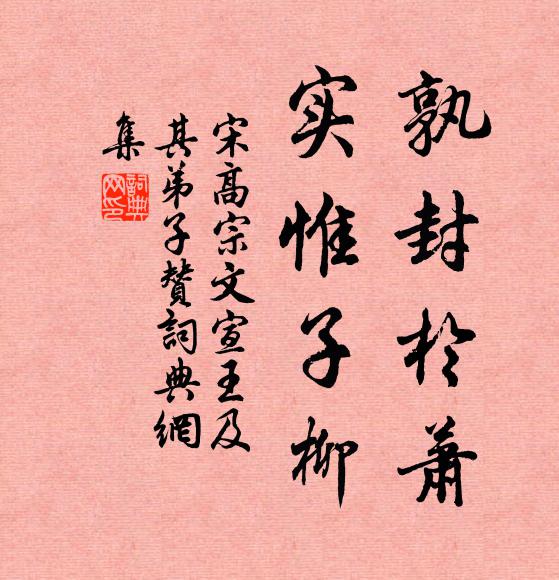 孰封於萧
实惟子柳
宋高宗文宣王及
其弟子赞詞典網
集
詞典
网印